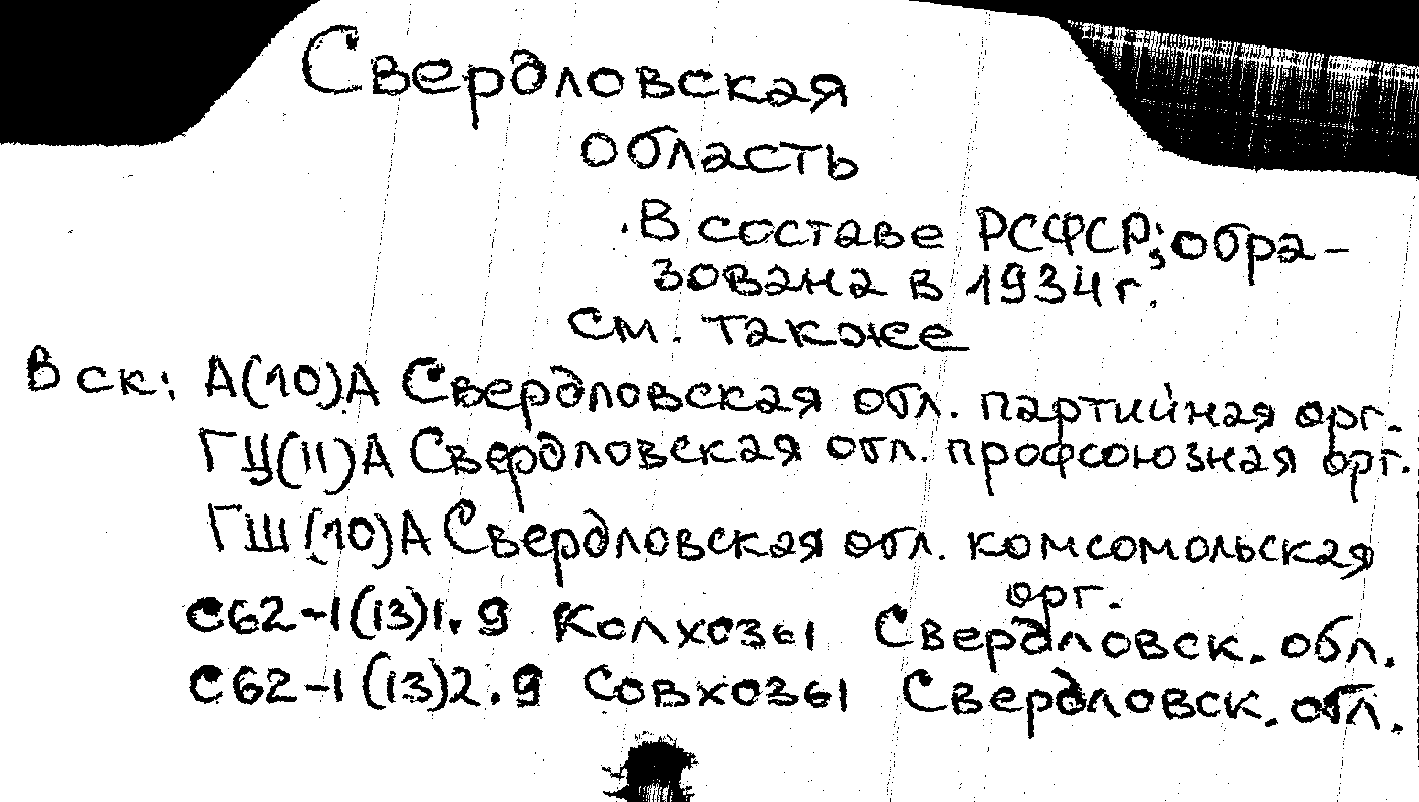 Свердловская
область
В составе РСФСР; обра-
зована в 1934 г.
см. также
В ск: А(10)А Свердловская обл. партийная орг.
ГЦ(11)А Свердловская обл. профсоюзная орг.
ГШ(10)А Свердловская обл. комсомольская
орг.
С62-1(13)1.9 Колхозы Свердловск. обл.
С62-1(13)2.9 Совхозы Свердловск. обл.